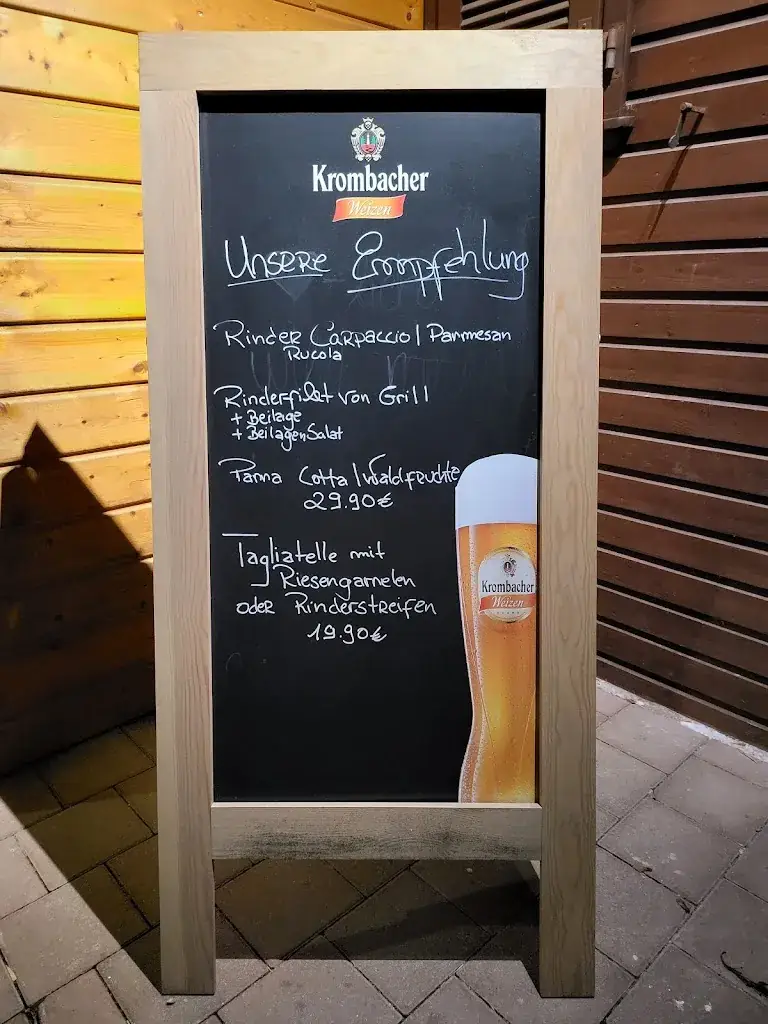 Krombacher
Weizen
Unsere Empfehlung
Rinder Carpaccio | Parmmesan
Rucola
Rinderfilet von Grill
+ Beilage
+ BeilagenSalat
Panna Cotta | Waldfruchte
29.90€
Tagliatelle mit
Riesengarnelen
oder Rinderstreifen
19.90€
Krombacher
Weizen